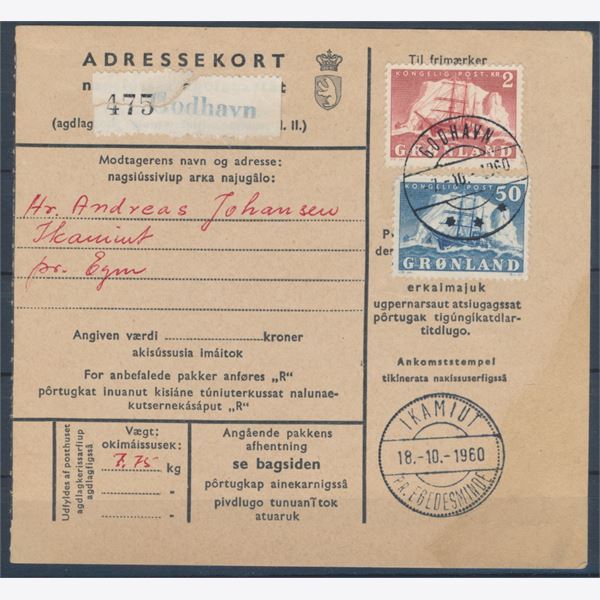 ADRESSEKORT
475 Godhavn
(agdlag
Modtagerens navn og adresse:
nagsiússiviup arĸa najugâlo:
Hr. Andreas Johansen
Ikamiut
pr. Egm
Angiven værdi kroner
akisússusia imáitoĸ
For anbefalede pakker anføres „R"
pôrtugkat inuanut kisiáne túniuterkussat nalunae-
kutsernekásáput „R"
Udfyldes af posthuset
agdlagkerissarfiup
agdlagfigssâ
Vægt:
okimáissusek:
7.75 kg
"
"
Angående pakkens
afhentning
se bagsiden
pôrtugkap ainekarnigssâ
pivdlugo tunuanĩtok
atuaruk
Til frimærker
KONGELIG POST. KR. 2
GRØNLAND
GODHAVN
10.-1960
KONGELIG POST 50
GRØNLAND
erkaimajuk
ugpernarsaut atsiugagssat
pôrtugak tigúngikatdlar-
titdlugo.
Ankomststempel
tikinerata nakissuserfigssâ
IKAMIUT
18.-10.-1960
PR. EGEDESMINDE